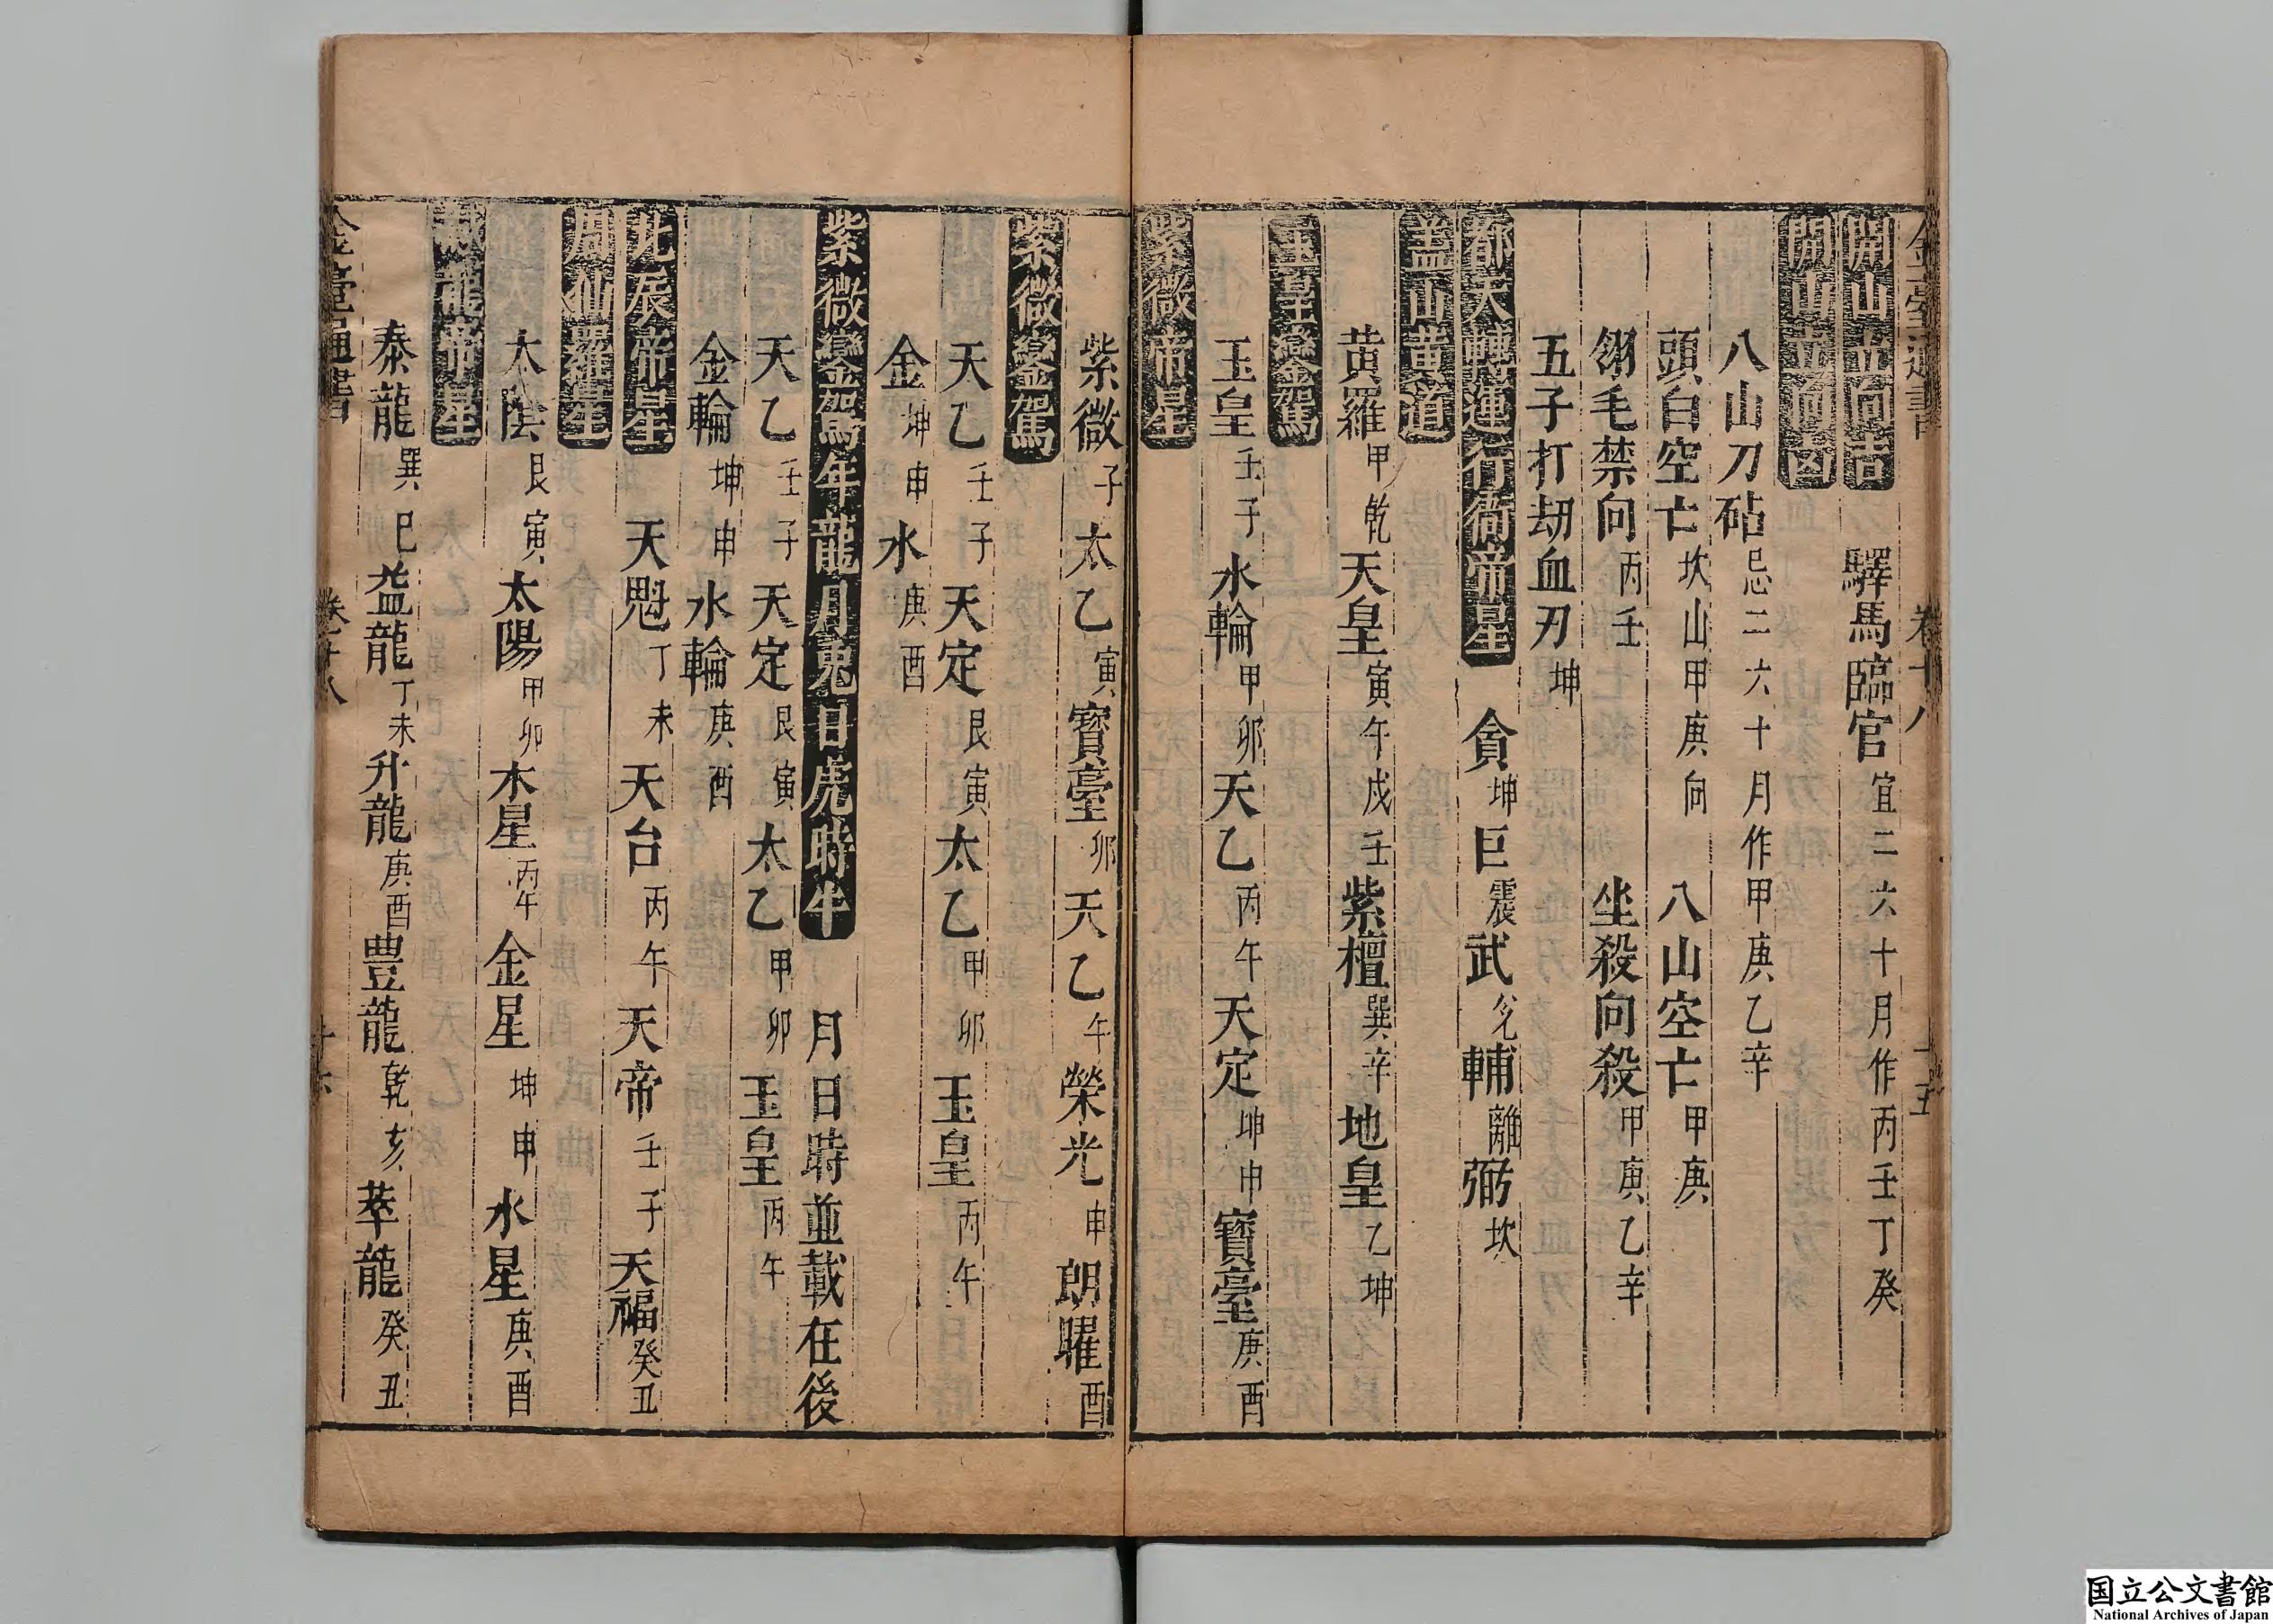 金臺通書 卷十八 十五
開山立向吉 驛馬臨官 宜二六十月作丙壬丁癸
開山立向凶
八山刀砧 忌二六十月作甲庚乙辛
頭白空亡 坎山甲庚向 八山空亡 甲庚
翎毛禁向 丙壬 坐殺向殺 甲庚乙辛
五子打劫血刃 坤
都天轉運行衙帝星 貪 坤 巨 震 武 兌 輔 離 弼 坎
蓋山黃道
黃羅 甲乾 天皇 寅午戌壬 紫檀 巽辛 地皇 乙坤
玉皇鑾駕
玉皇 壬子 水輪 甲卯 天乙 丙午 天定 坤申 寶臺 庚酉
紫微帝星
紫微 子 太乙 寅 寶臺 卯 天乙 午 榮光 申 朗曜 酉
紫微鑾駕
天乙 壬子 天定 艮寅 太乙 甲卯 玉皇 丙午
金 坤申 水 庚酉
紫微鑾駕年龍月兔日虎時牛 月日時並載在後
天乙 壬子 天定 艮寅 太乙 甲卯 玉皇 丙午
金輪 坤申 水輪 庚酉
北辰帝星 天魁 丁未 天台 丙午 天帝 壬子 天福 癸丑
周仙羅星
太陰 艮寅 太陽 甲卯 木星 丙午 金星 坤申 水星 庚酉
龍帝星
泰龍 巽巳 益龍 丁未 升龍 庚酉 豊龍 乾亥 萃龍 癸丑
金臺通書 卷十八 十六
国立公文書館
National Archives of Japan